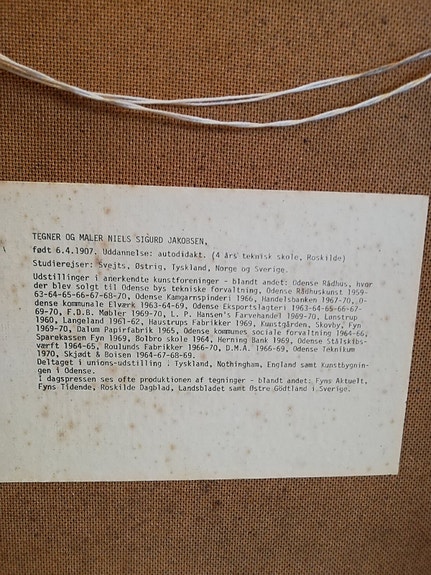 TEGNER OG MALER NIELS SIGURD JAKOBSEN,
født 6.4.1907. Uddannelse: autodidakt. (4 års teknisk skole, Roskilde)
Studierejser: Svejts, Østrig, Tyskland, Norge og Sverige.
Udstillinger i anerkendte kunstforeninger - blandt andet: Odense Rådhus, hvor
der blev solgt til Odense bys tekniske forvaltning, Odense Rådhuskunst 1959-
63-64-65-66-67-68-70, Odense Kamgarnspinderi 1966, Handelsbanken 1967-70, O-
dense kommunale Elværk 1963-64-69, Odense Eksportslagteri 1963-64-65-66-67-
69-70, F.D.B. Møbler 1969-70, L. P. Hansen's Farvehandel 1969-70, Lønstrup
1960, Langeland 1961-62, Haustrups Fabrikker 1969, Kunstgården, Skovby, Fyn
1969-70, Dalum Papirfabrik 1965, Odense kommunes sociale forvaltning 1964-66,
Sparekassen Fyn 1969, Bolbro skole 1964, Herning Bank 1969, Odense Stålskibs-
værft 1964-65, Roulunds Fabrikker 1966-70, D.M.A. 1966-69, Odense Teknikum
1970, Skjødt & Boisen 1964-67-68-69.
Deltaget i unions-udstilling i Tyskland, Nothingham, England samt Kunstbygnin-
gen i Odense.
I dagspressen ses ofte produktionen af tegninger - blandt andet: Fyns Aktuelt,
Fyns Tidende, Roskilde Dagblad, Landsbladet samt Østre Gödtland i Sverige.